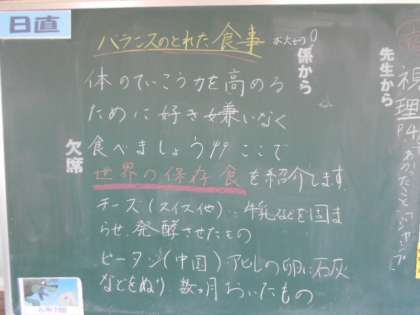 日直
バランスのとれた食事
係から
体のていこう力を高める
ために好き嫌いなく
食べましょう!!ここで
世界の保存食を紹介します
チーズ(スイス他)‥牛乳などを固ま
らせ、発酵させたもの
ピータン(中国)アヒルの卵に石灰
などをぬり 数ヶ月おいたもの
欠席
先生から